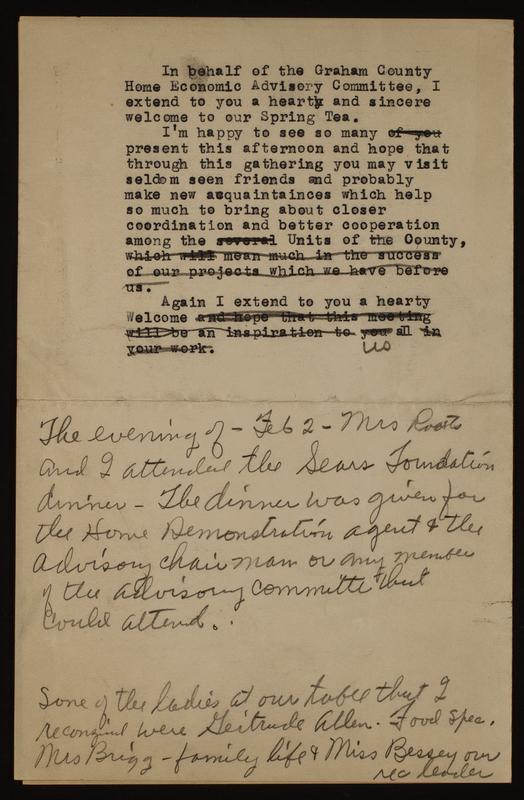 In behalf of the Graham County
Home Economic Advisory Committee, I
extend to you a hearty and sincere
welcome to our Spring Tea.
I'm happy to see so many of you
present this afternoon and hope that
through this gathering you may visit
seldom seen friends and probably
make new acquaintainces which help
so much to bring about closer
coordination and better cooperation
among the several Units of the County,
which will mean much in the success
of our projects which we have before
us.
Again I extend to you a hearty
Welcome and hope that this meeting
will be an inspiration to you all in
us
your work.
The evening of - Feb 2 - Mrs
and I attended the Sears Foundation
dinner - The dinner was given for
the Home Demonstration agent & the
advisory chairman or any member
of the advisory committe that
could attend.
Some of the ladies at our table that I
were Geitrude Allen. Food Spec.
Mrs Brigg - family life & Miss Bessey our
rec leader